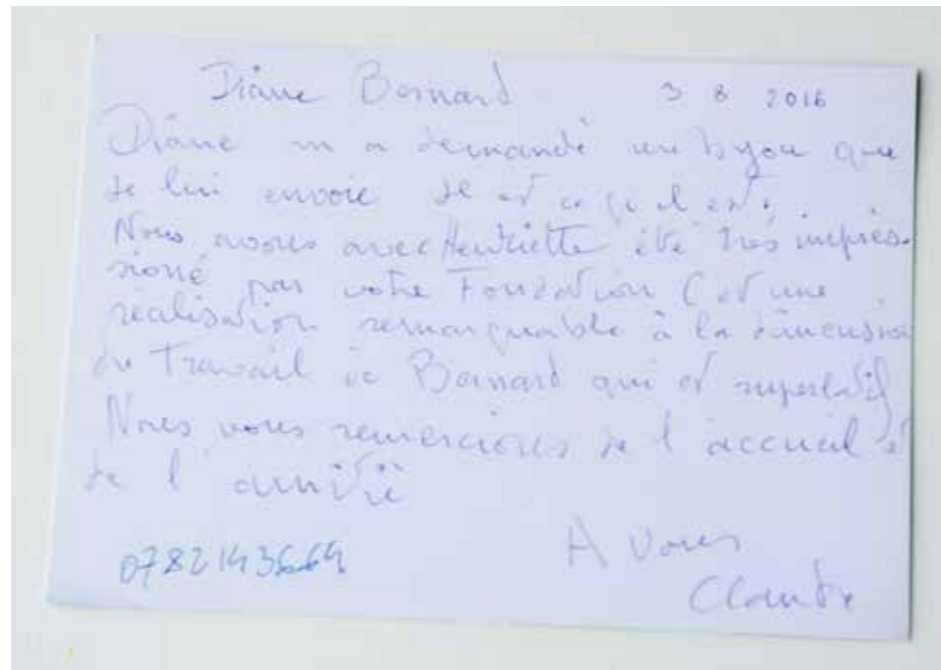 Diane Bernard 3 8 2016
Diane m a demandé un bijou que
je lui envoie Il est ce qu il est.
Nous avons avec Henriette été très impres-
sioné par votre Fondation C est une
réalisation remarquable à la dimension
du Travail de Bernard qui est superlatif
Nous vous remercions de l accueil et
de l amitié
A vous
0782143664
Claude